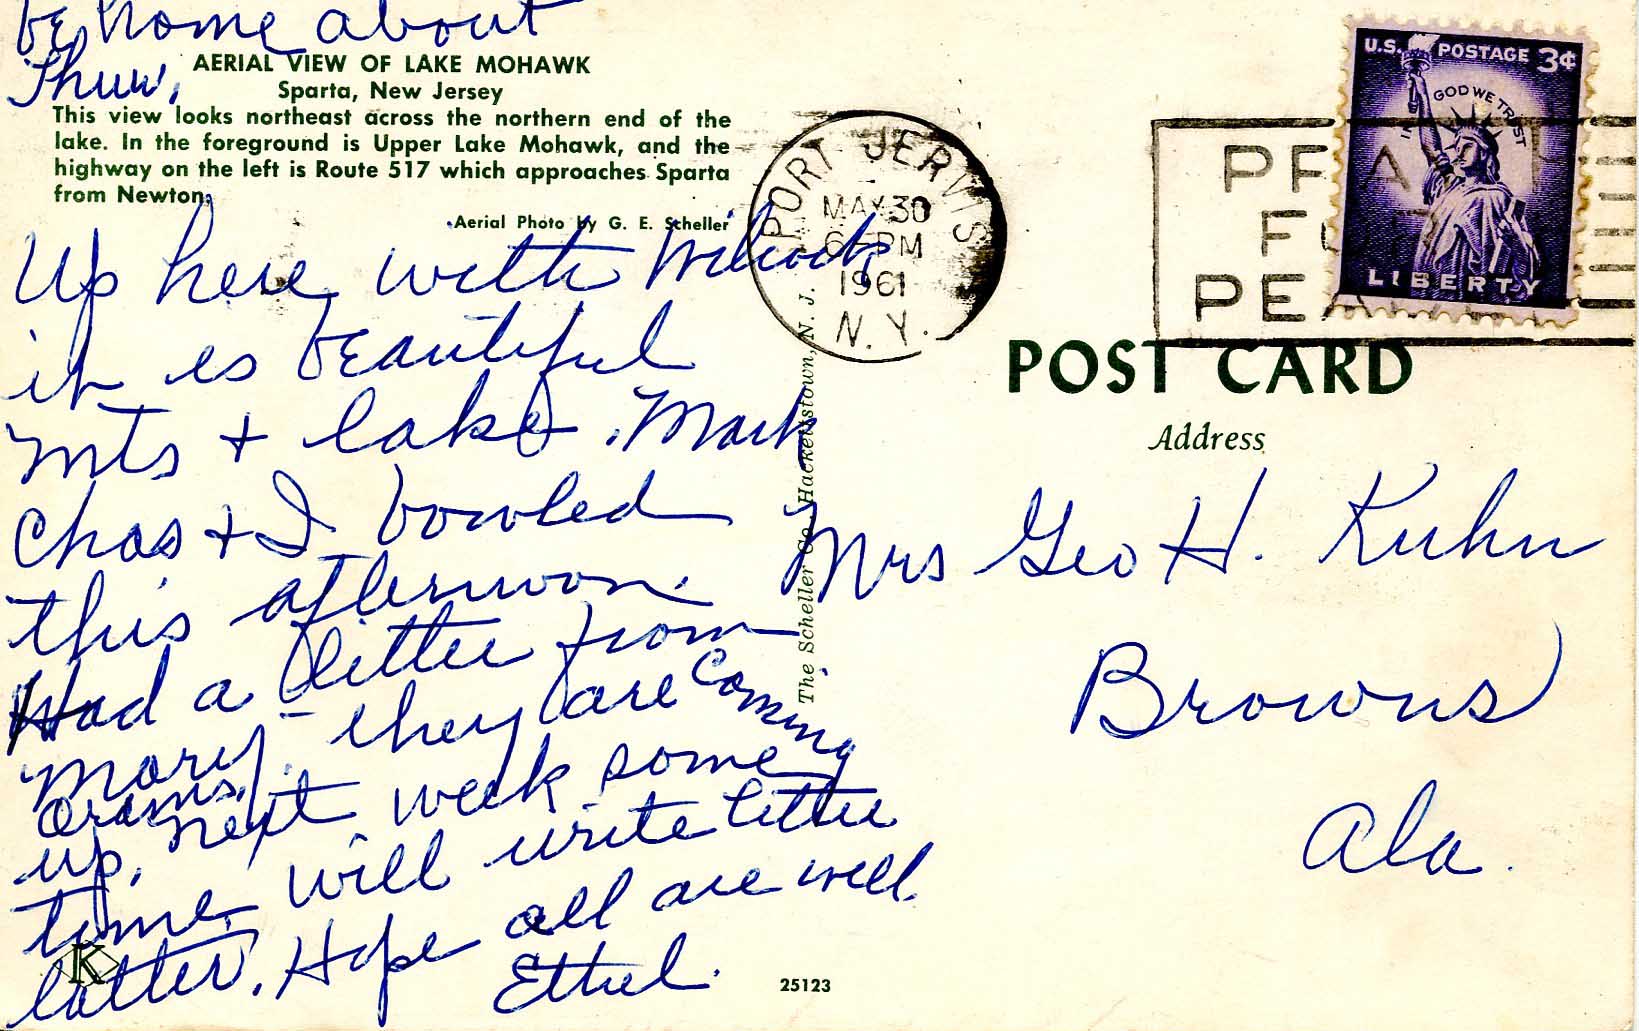 be home about
Thur,
AERIAL VIEW OF LAKE MOHAWK
Sparta, New Jersey
This view looks northeast across the northern end of the
lake. In the foreground is Upper Lake Mohawk, and the
highway on the left is Route 517 which approaches Sparta
from Newton.
Aerial Photo by G. E. Scheller
Up here with Wilcocks
it is beautiful
mts + lake. Mark
Chas + I bowled
this afternoon.
Had a letter from
Mary - they are coming
Orams,
up, next week some
time will write letter
latter. Hope all are well.
Ethel.
K
25123
The Scheller Co. Hackettstown, N. J.
PORT JERVIS
MAY 30
6 PM
1961
N. Y.
PRAY
FOR
PEACE
U.S. POSTAGE 3¢
IN GOD WE TRUST
LIBERTY
POST CARD
Address
Mrs Geo H. Kuhn
Browns
Ala.